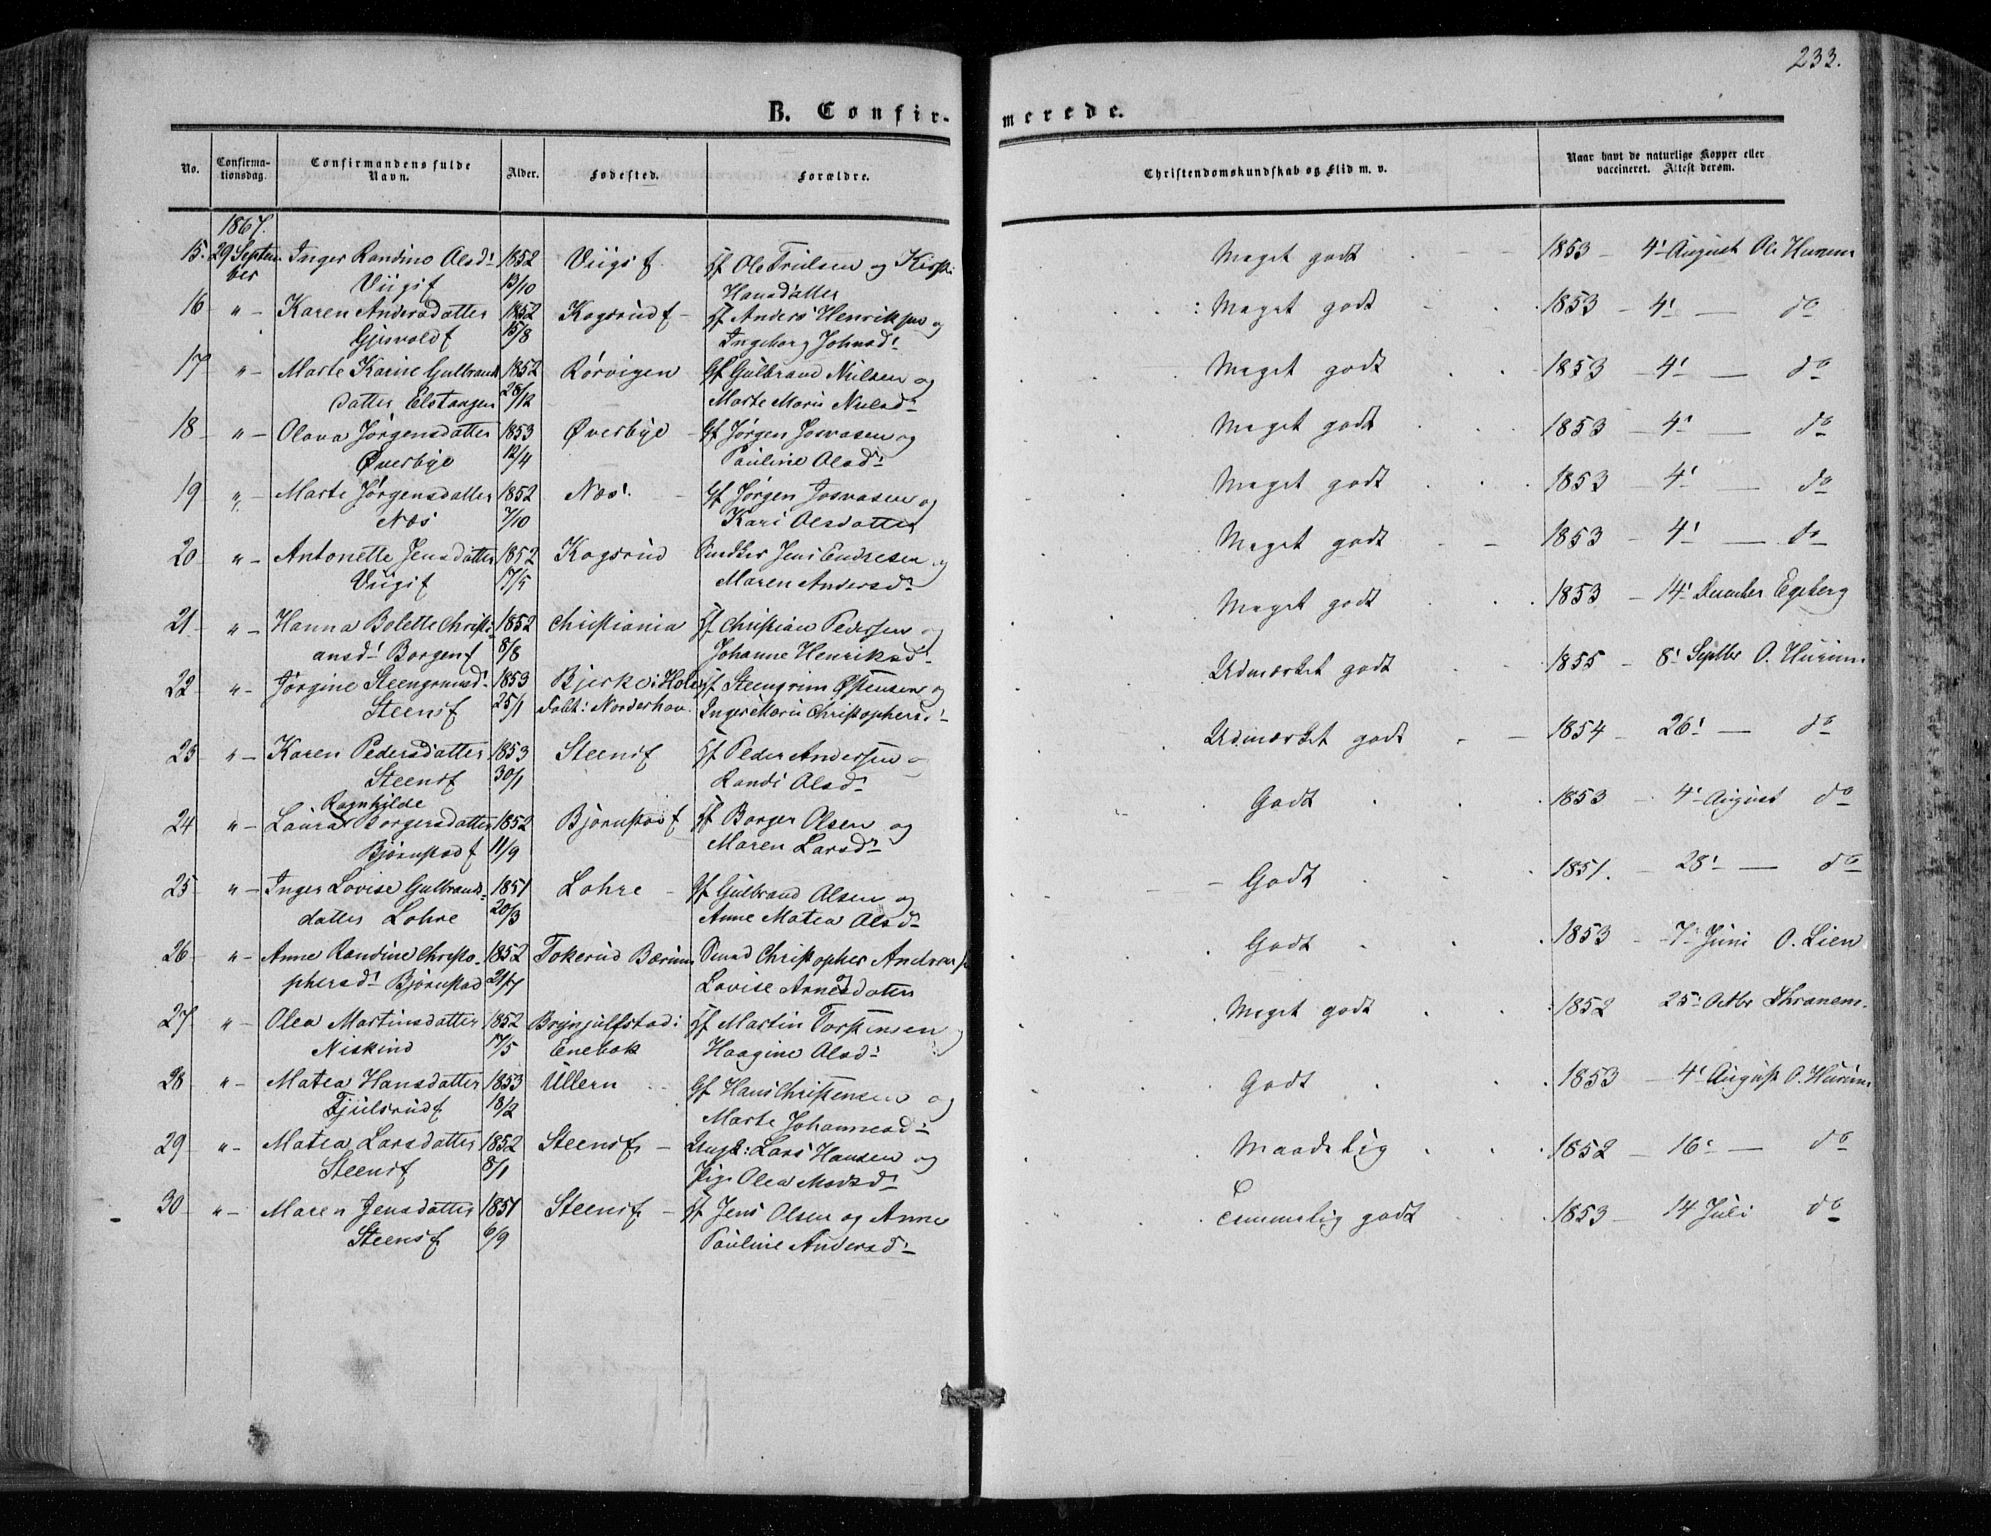 233.
B. Confirmerede.
No. Confirmationsdag. Confirmandens fulde Navn. Alder. Fødested. Forældre. Christendomskundskab og Flid m. v. Naar havt de naturlige Kopper eller vaccineret. Attest derom.
1867.
15. 29 September Inger Randine Olsd. 1852 Viigsf. Gf Ole Trulsen og Meget godt 1853 – 4' August
Viigsf 13/10 Hansdatter
16 " Karen Andersdatter 1852 Kogsrudf Gf Anders Henriksen og Meget godt 1853 – 4' – do
15/8 Ingeborg Johnsd:
17 " Marte Karine Gulbrands 1852 Rørvigen Gf Gulbrand Nielsen og Meget godt 1853 – 4' – do
datter Elstangen 28/12 Marte Marie Nielsd:
18 " Olava Jørgensdatter 1853 Øverbye Gf Jørgen Josvasen og Meget godt 1853 – 4' – do
Øverbye 12/4 Pauline Olsd:
19 " Marte Jørgensdatter 1852 Næs. Gf Jørgen Josvasen og Meget godt 1853 – 4' – do
Næs 7/10 Kari Olsdatter
20 " Antonette Jensdatter 1852 Kogsrud Jens Endresen og Meget godt 1853 – 4' – do
Viigsf 17/5 Maren Andersd:
21 " Hanna Bolette Christi- 1852 Christiania Gf Christian Pedersen og Meget godt 1853 – 14' December Egeberg
ansd: Borgenf 8/8 Johanne Henriksd:
22 " Jørgine Steengrimsd: 1853 Bjerke i Hole Gf Steengrim Østensen og Udmærket godt 1855 – 8' Septbr O. Hurum
Steensf 25/1 Døbt: Norderhov. Inger Marie Christophersd:
23 " Karen Pedersdatter 1853 Steensf Gf Peder Andersen og Udmærket godt 1854 – 26' – do
Steensf 30/1 Randi Olsd:
Ragnhilde
24 " Laura Borgersdatter 1852 Bjørnstadf Gf Borger Olsen og Godt 1853 – 4' August do
Bjørnstadf 11/9 Maren Larsd:
25 " Inger Lovise Gulbrands- 1851 Lohre Gf Gulbrand Olsen og Godt 1851. – 28' – do
datter Lohre 20/3 Anne Matea Olsd:
26 " Anne Randine Christo- 1852 Tokerud Bærum Christopher Andersen Godt 1853 – 7' Juni O. Lien
phersd: Bjørnstad 21/7 Lovise Arnesdatter
27 " Olea Martinsdatter 1852 Brynjulfstad i Gf Martin Torstensen og Meget godt 1852 25' Octbr
Niskind 17/5 Enebak Haagine Olsd:
28 " Matea Hansdatter 1853 Ullern Gf Hans Christensen og Godt 1853 – 4' August O. Hurum
Fjulsrudf 18/2 Marte Johannesd:
29 " Matea Larsdatter 1852 Steensf Ungk: Lars Hansen og Maadelig 1852 – 16' – do
Steensf 8/1 Pige Olea Madsd:
30 " Maren Jensdatter 1851 Steensf Gf Jens Olsen og Anne Temmelig godt 1853 – 14 Juli do
Steensf 6/9 Pauline Andersd: